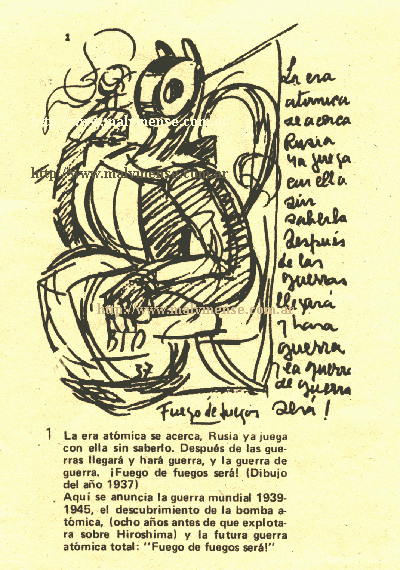 1
La era
atomica
se acerca
Rusia
ya juega
con ella
sin
saberlo
Después
de las
guerras
llegará
y hara
guerra
y la guerra
de guerra
será!
Fuego de fuegos
37
http://www.malvinense.com.ar
http://www.malvinense.com.ar
http://www.malvinense.com.ar
1 La era atómica se acerca, Rusia ya juega
con ella sin saberlo. Después de las gue-
rras llegará y hará guerra, y la guerra de
guerra. ¡Fuego de fuegos será! (Dibujo
del año 1937)
Aquí se anuncia la guerra mundial 1939-
1945, el descubrimiento de la bomba a-
tómica, (ocho años antes de que explota-
ra sobre Hiroshima) y la futura guerra
atómica total: "Fuego de fuegos será!"